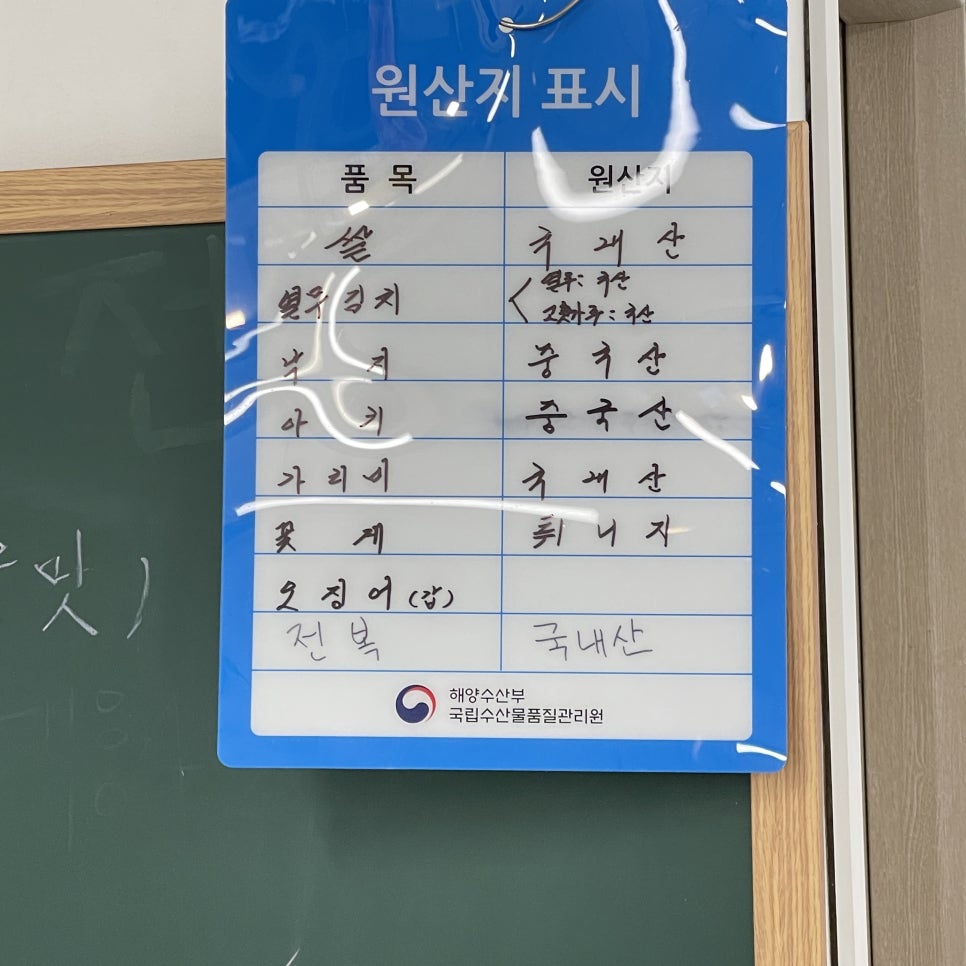 원산지 표시
품 목 원산지
쌀 국 내 산
열무김치 열무: 국산
고춧가루: 국산
낙 지 중 국 산
아 귀 중 국 산
가 리 비 국 내 산
꽃 게 튀 니 지
오 징 어 (갑)
전 복 국내산
해양수산부
국립수산물품질관리원
맛)